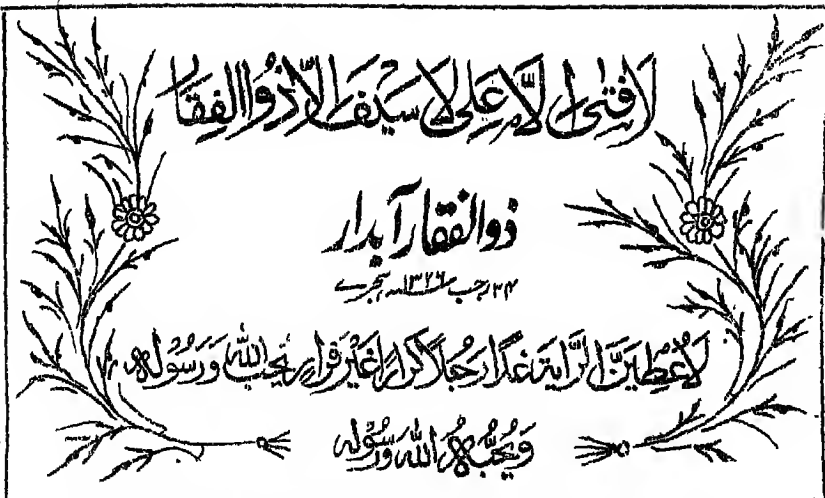 لَا فَتٰى اِلَّا عَلِى لَا سَيْفَ اِلَّا ذُوالْفِقَار
ذوالفقار آبدار
۲۴ رجب ۱۳۲۶ سنہ ہجرے
لَاُعْطِيَنَّ الرَّايَةَ غَدًا رَجُلًا كَرَّارًا غَيْرَ فَرَّارٍ يُحِبُّ اللّٰهَ وَرَسُوْلَهٗ
وَيُحِبُّهُ اللّٰهُ وَرَسُوْلُهٗ